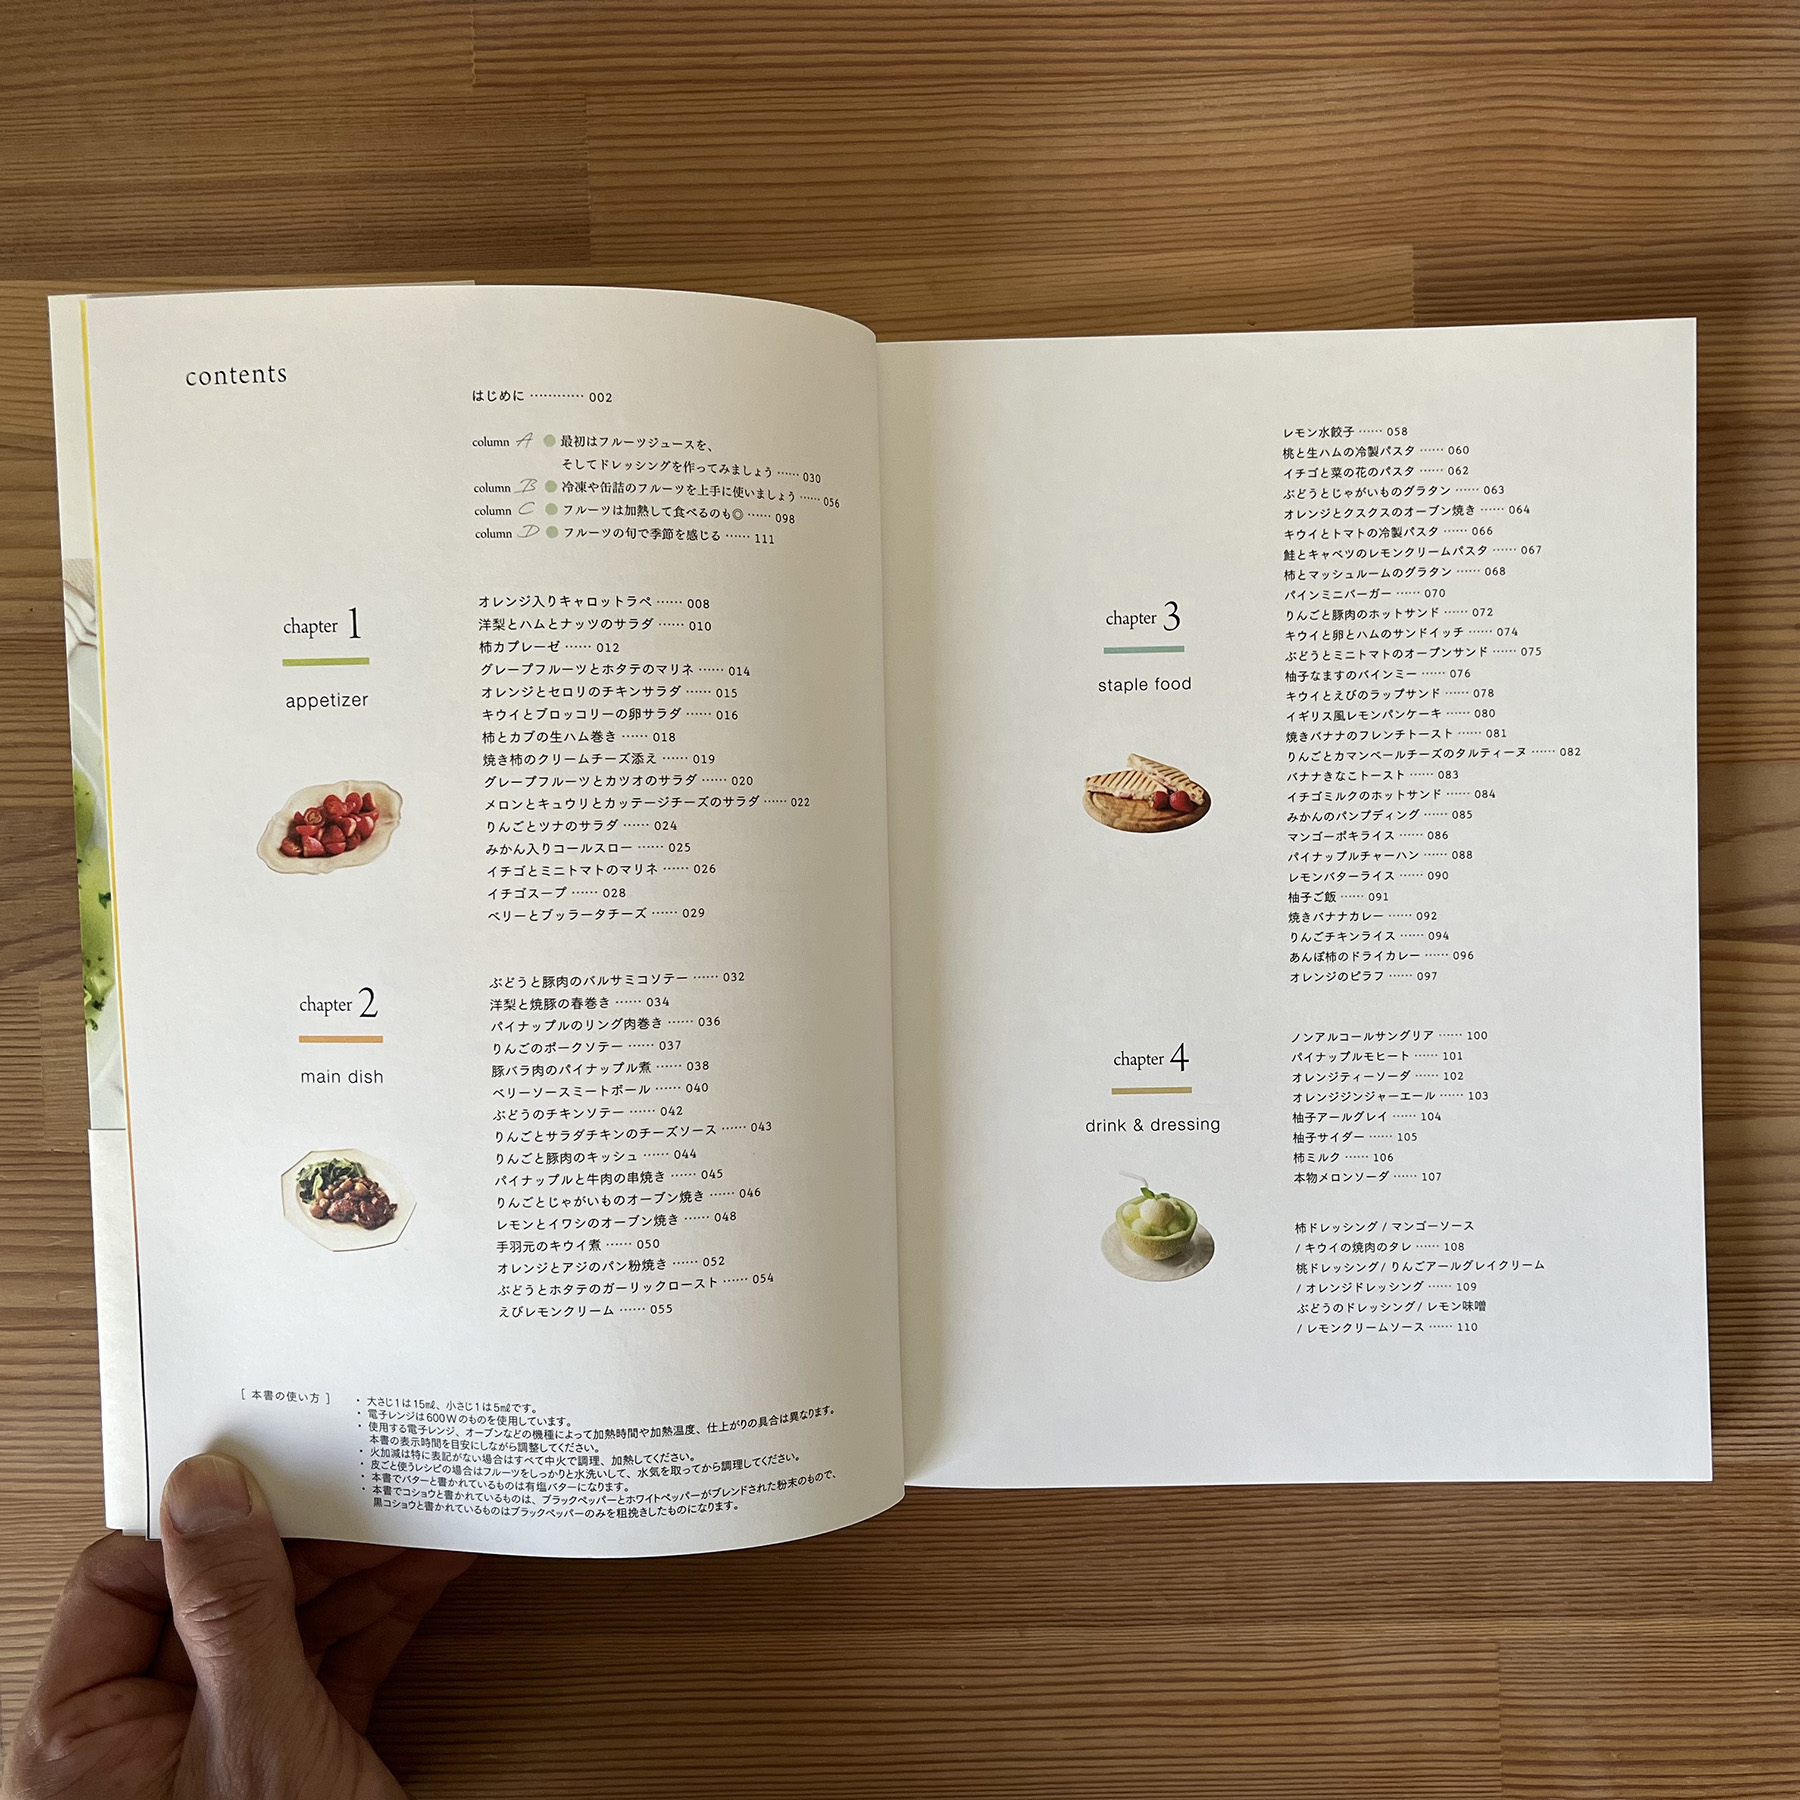 contents
はじめに ………… 002
column A ● 最初はフルーツジュースを、
そしてドレッシングを作ってみましょう …… 030
column B ● 冷凍や缶詰のフルーツを上手に使いましょう …… 056
column C ● フルーツは加熱して食べるのも◎ …… 098
column D ● フルーツの旬で季節を感じる …… 111
chapter 1
appetizer
オレンジ入りキャロットラペ …… 008
洋梨とハムとナッツのサラダ …… 010
柿カプレーゼ …… 012
グレープフルーツとホタテのマリネ …… 014
オレンジとセロリのチキンサラダ …… 015
キウイとブロッコリーの卵サラダ …… 016
柿とカブの生ハム巻き …… 018
焼き柿のクリームチーズ添え …… 019
グレープフルーツとカツオのサラダ …… 020
メロンとキュウリとカッテージチーズのサラダ …… 022
りんごとツナのサラダ …… 024
みかん入りコールスロー …… 025
イチゴとミニトマトのマリネ …… 026
イチゴスープ …… 028
ベリーとブッラータチーズ …… 029
chapter 2
main dish
ぶどうと豚肉のバルサミコソテー …… 032
洋梨と焼豚の春巻き …… 034
パイナップルのリング肉巻き …… 036
りんごのポークソテー …… 037
豚バラ肉のパイナップル煮 …… 038
ベリーソースミートボール …… 040
ぶどうのチキンソテー …… 042
りんごとサラダチキンのチーズソース …… 043
りんごと豚肉のキッシュ …… 044
パイナップルと牛肉の串焼き …… 045
りんごとじゃがいものオーブン焼き …… 046
レモンとイワシのオーブン焼き …… 048
手羽元のキウイ煮 …… 050
オレンジとアジのパン粉焼き …… 052
ぶどうとホタテのガーリックロースト …… 054
えびレモンクリーム …… 055
[ 本書の使い方 ]
・ 大さじ1は15㎖、小さじ1は5㎖です。
・ 電子レンジは600Wのものを使用しています。
・ 使用する電子レンジ、オーブンなどの機種によって加熱時間や加熱温度、仕上がりの具合は異なります。
本書の表示時間を目安にしながら調整してください。
・ 火加減は特に表記がない場合はすべて中火で調理、加熱してください。
・ 皮ごと使うレシピの場合はフルーツをしっかりと水洗いして、水気を取ってから調理してください。
・ 本書でバターと書かれているものは有塩バターになります。
・ 本書でコショウと書かれているものは、ブラックペッパーとホワイトペッパーがブレンドされた粉末のもので、
黒コショウと書かれているものはブラックペッパーのみを粗挽きしたものになります。
chapter 3
staple food
レモン水餃子 …… 058
桃と生ハムの冷製パスタ …… 060
イチゴと菜の花のパスタ …… 062
ぶどうとじゃがいものグラタン …… 063
オレンジとクスクスのオーブン焼き …… 064
キウイとトマトの冷製パスタ …… 066
鮭とキャベツのレモンクリームパスタ …… 067
柿とマッシュルームのグラタン …… 068
パインミニバーガー …… 070
りんごと豚肉のホットサンド …… 072
キウイと卵とハムのサンドイッチ …… 074
ぶどうとミニトマトのオープンサンド …… 075
柚子なますのバインミー …… 076
キウイとえびのラップサンド …… 078
イギリス風レモンパンケーキ …… 080
焼きバナナのフレンチトースト …… 081
りんごとカマンベールチーズのタルティーヌ …… 082
バナナきなこトースト …… 083
イチゴミルクのホットサンド …… 084
みかんのパンプディング …… 085
マンゴーポキライス …… 086
パイナップルチャーハン …… 088
レモンバターライス …… 090
柚子ご飯 …… 091
焼きバナナカレー …… 092
りんごチキンライス …… 094
あんぽ柿のドライカレー …… 096
オレンジのピラフ …… 097
chapter 4
drink & dressing
ノンアルコールサングリア …… 100
パイナップルモヒート …… 101
オレンジティーソーダ …… 102
オレンジジンジャーエール …… 103
柚子アールグレイ …… 104
柚子サイダー …… 105
柿ミルク …… 106
本物メロンソーダ …… 107
柿ドレッシング / マンゴーソース
/ キウイの焼肉のタレ …… 108
桃ドレッシング / りんごアールグレイクリーム
/ オレンジドレッシング …… 109
ぶどうのドレッシング / レモン味噌
/ レモンクリームソース …… 110